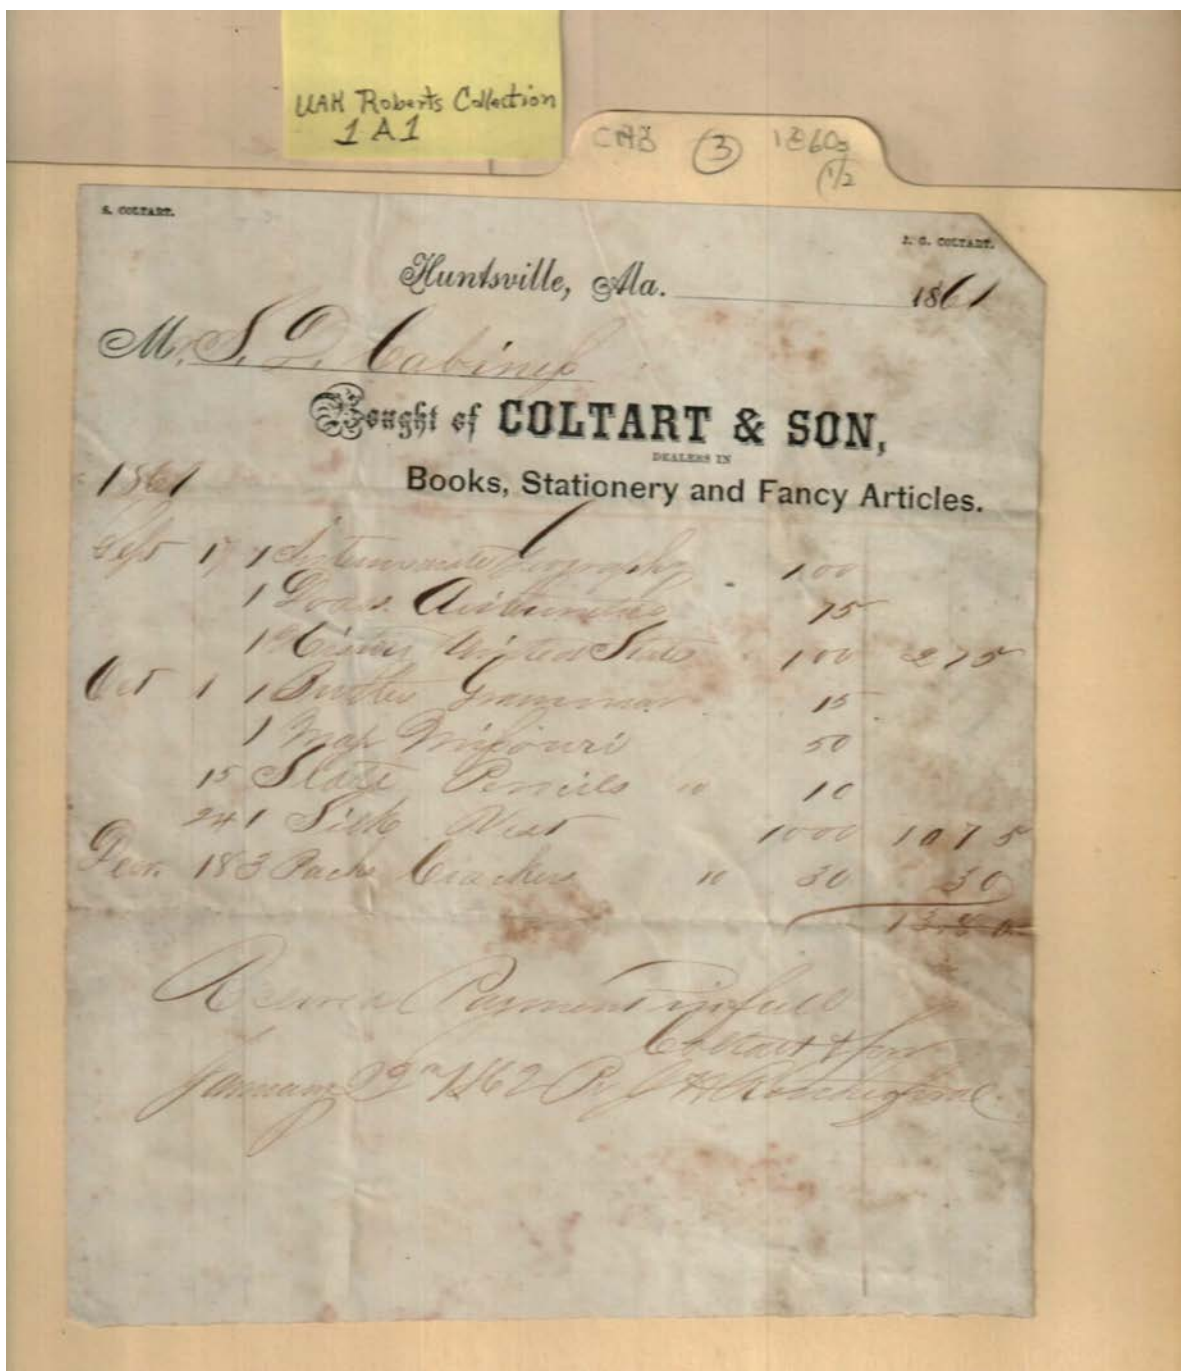 UAH Roberts Collection
1A1
CAB 3 1860s
(1/2
S. COLTART.
J. G. COLTART.
Huntsville, Ala. 1861
M. S. D. Cabiness
Bought of COLTART & SON,
DEALERS IN
Books, Stationery and Fancy Articles.
1861
Sept 17 1 Geography 1 00
1 Arithmetic 75
1 History United States 1 00 2 75
Oct 1 1 Grammar 15
1 Map Missouri 50
15 Slate Pencils 10 10
24 1 Silk Vest 10 00 10 75
Decr. 18 3 Packs Crackers 10 30 30
13.80
Received Payment in full
Coltart & Son
January 1862